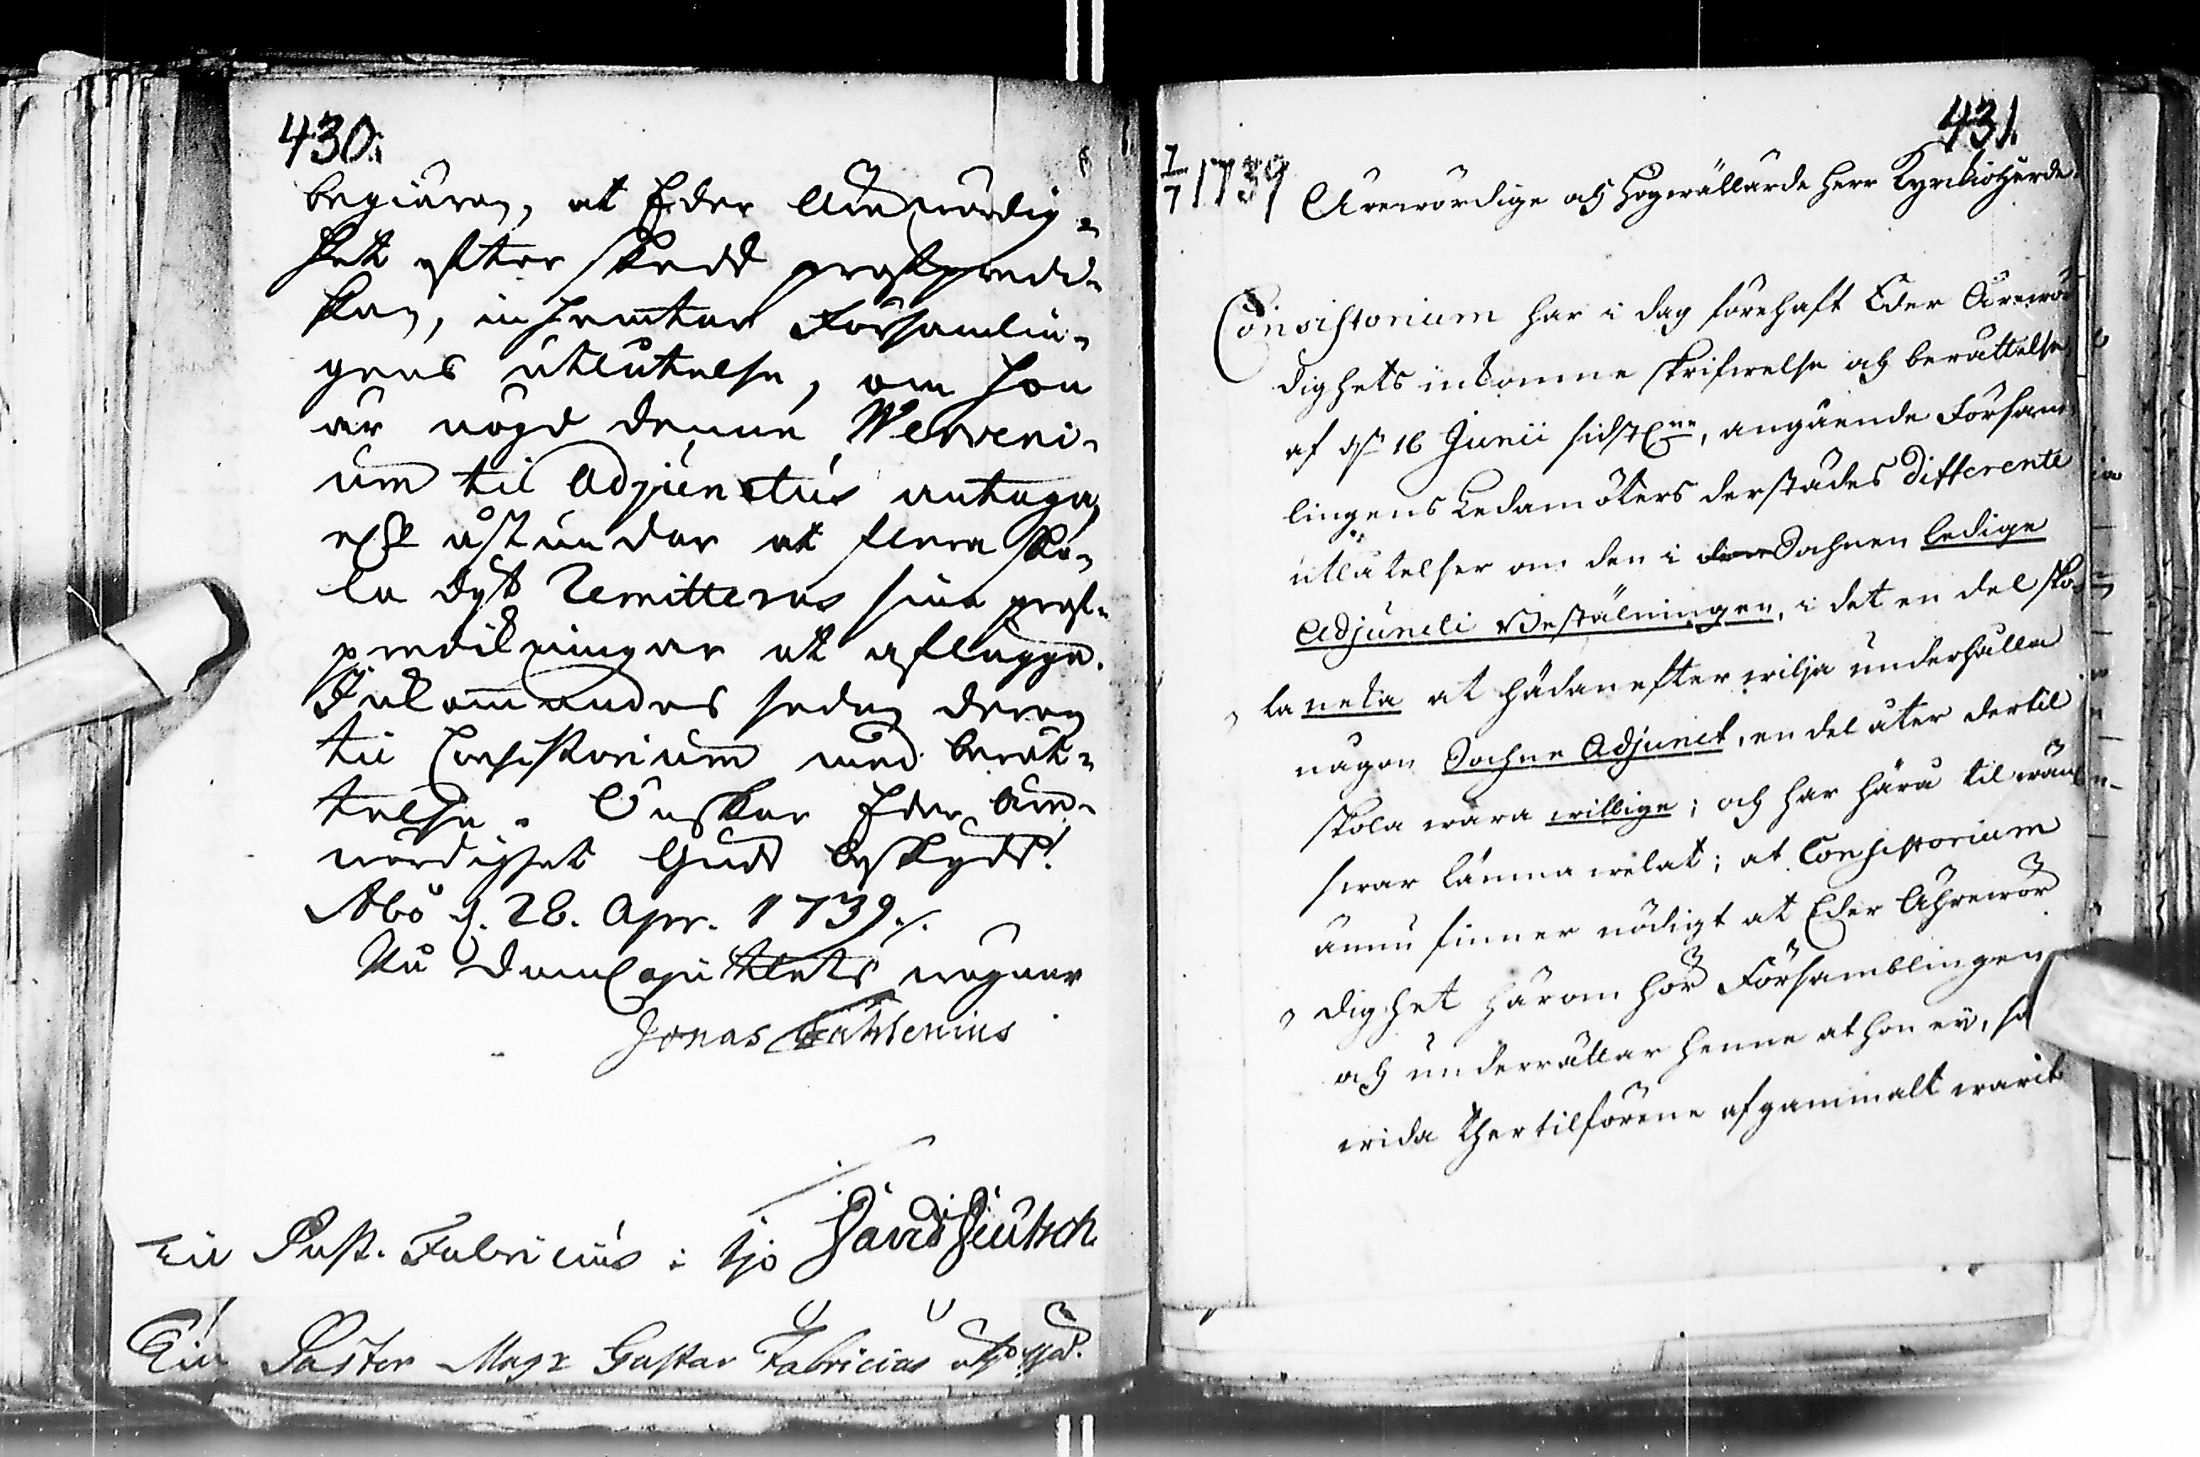 430.
begiäran, at Eder Ährewördig-
het efter skedd profpredi-
kan, inhemtar Församlin-
gens utlåtelse, om hon
är nögd denne Werveni-
um til Adjunctus antaga,
eller åstundar at flera skó-
la dyt remitteras sine prof-
predikningar at aflägga.
Inkommandes sedan derom
til Consistorium med berät-
telse. Önskar Eder Ähre-
wördighet Guds beskydd!
Åbo d. 28. Apr. 1739./.
På DomCapitlets wägnar
Jonas Fahlenius
David Deutsch.
Til Past. Fabricius i Kjo
Til Pastor Mag:r Gustav Fabricius
431.
7/7 1739
Ärewördige och Högwällärde Herr Kyrckioherde.
Consistorium har i dag förehaft Eder Ärewör
dighets inkomne skrifwelse och berättelse
af d:n 16 Junii sidstl:ne, angående Försam-
lingens Ledamöters derstädes differente
utlåtelser om den i Sochnen ledige
Adjuncti Bestälningen, i det en del sko-
la neka at hädanefter wilja underhålla
någon Sochne Adjunct, en del åter dertil
skola wara willige; och har häru til
swar lämna welat; at Consistorium
ännu finner nödigt at Eder Ährewör
dighet härom hör Församblingen
och underrättar henne at hon ey, så
wida ther tilförene af gammalt warit